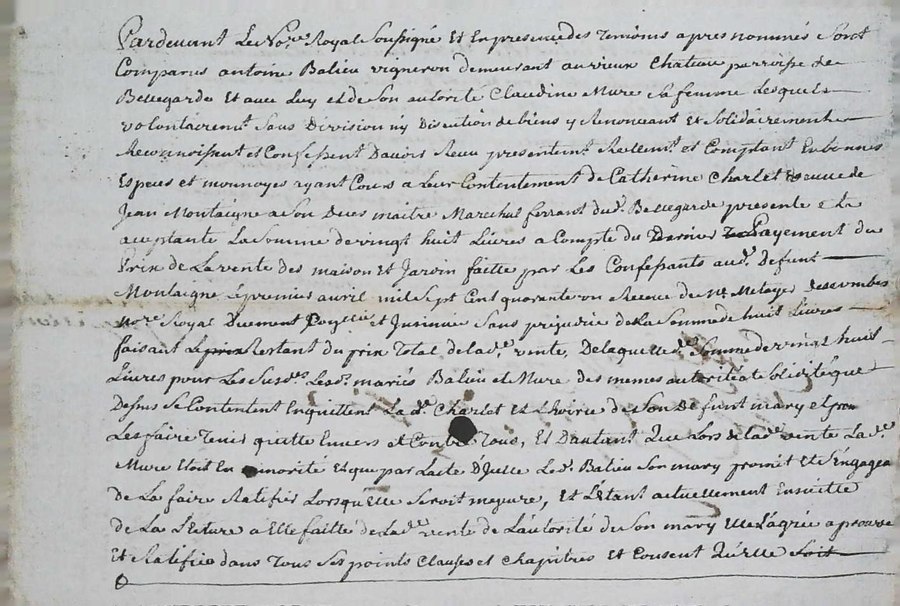 Pardevant Le No.re Royal Soussigné Et En presence des Temoins apres nommés Sont
Comparus antoine Balieu vigneron demeurant au vieux Chateau parroisse de
Bellegarde Et avec Luy et de Son autorité Claudine Mure Sa femme Lesquels
volontairem.t Sans Division ny Discution de biens y Renonceant Et Solidairement
Reconnoissent et Confessent D'avoir Receu presentem.t Reellem.t et Comptant En bonnes
Especes et monnoyes ayant Cours a Leur Contentement de Catherine Charlet veuve de
Jean Montaigne a Son Vivant maitre Marechal ferrant dud.t Bellegarde presente Et
aceptante La Somme de vingt huit Livres a Compte du Dernier Payement du
Prix de La vente des maison Et Jardin faitte par Les Confessants aud.t Defunt
Montaigne Le premier avril mil Sept Cent quarante un Receue de M.e Metayer
No.re Royal Duement Controllé et Insinuée Sans prejudice de La Somme de huit Livres
faisant Le Restant du prix Total de lad.e vente, De laquelle d.e Somme de vingt huit
Livres pour Les Susd.es Lesd.s mariés Balieu et Mure des memes autorité et Solidité que
Dessus Se Contentent En quittent La d.e Charlet Et L'hoirie de Son Defunt mary et prom
Les faire Tenir quitte Envers et Contre Tous, Et D'autant Que Lors de lad.e vente La d.e
Mure Etoit En minorité Et que par L'acte D'Jcelle Led.t Balieu Son mary promit Et S'Engagea
de La faire Ratifier Lorsqu'Elle Seroit majeure, Et L'Etant actuellement Ensuitte
de La Lecture a Elle faitte de Lad.e vente de L'autorité de Son mary Elle L'agrée aprouve
Et Ratifie dans Tous Ses points Clauses et Chapitres Et Consent Qu'elle Soit